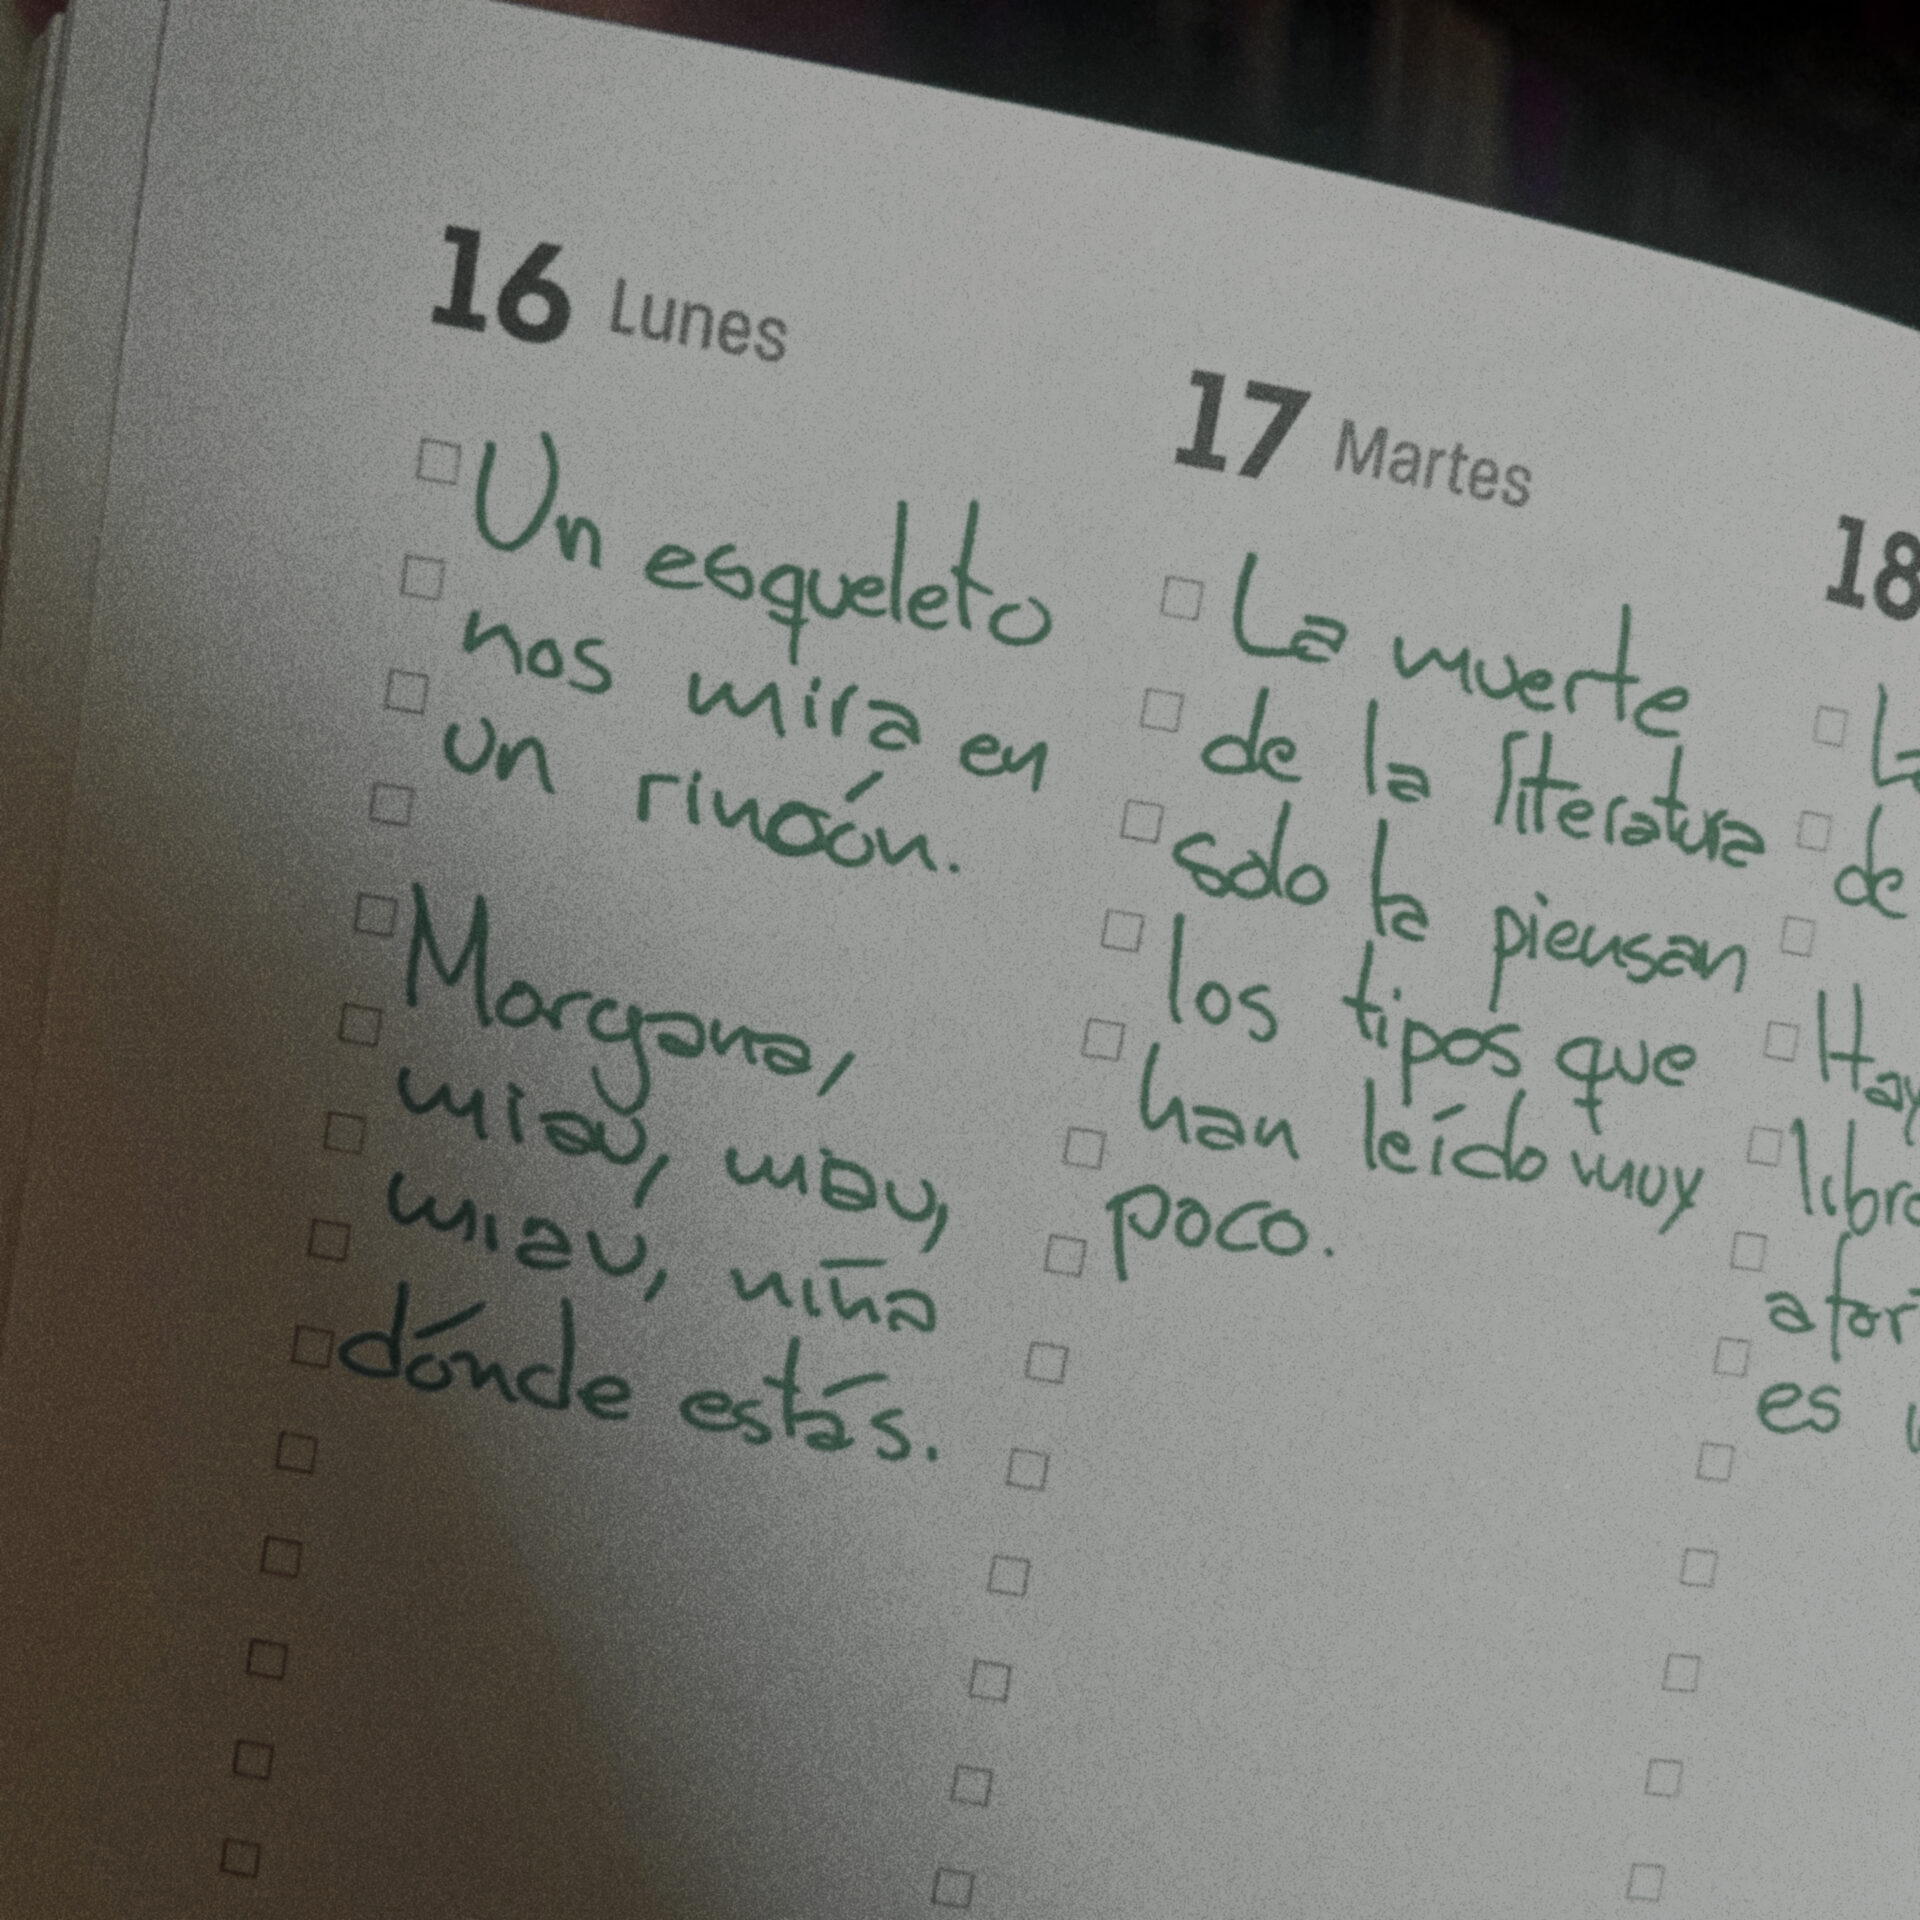 16 Lunes
Un esqueleto
nos mira en
un rincón.
Morgana,
miau, miau,
miau, niña
dónde estás.
17 Martes
La muerte
de la literatura
solo la piensan
los tipos que
han leído muy
poco.
18
de
es